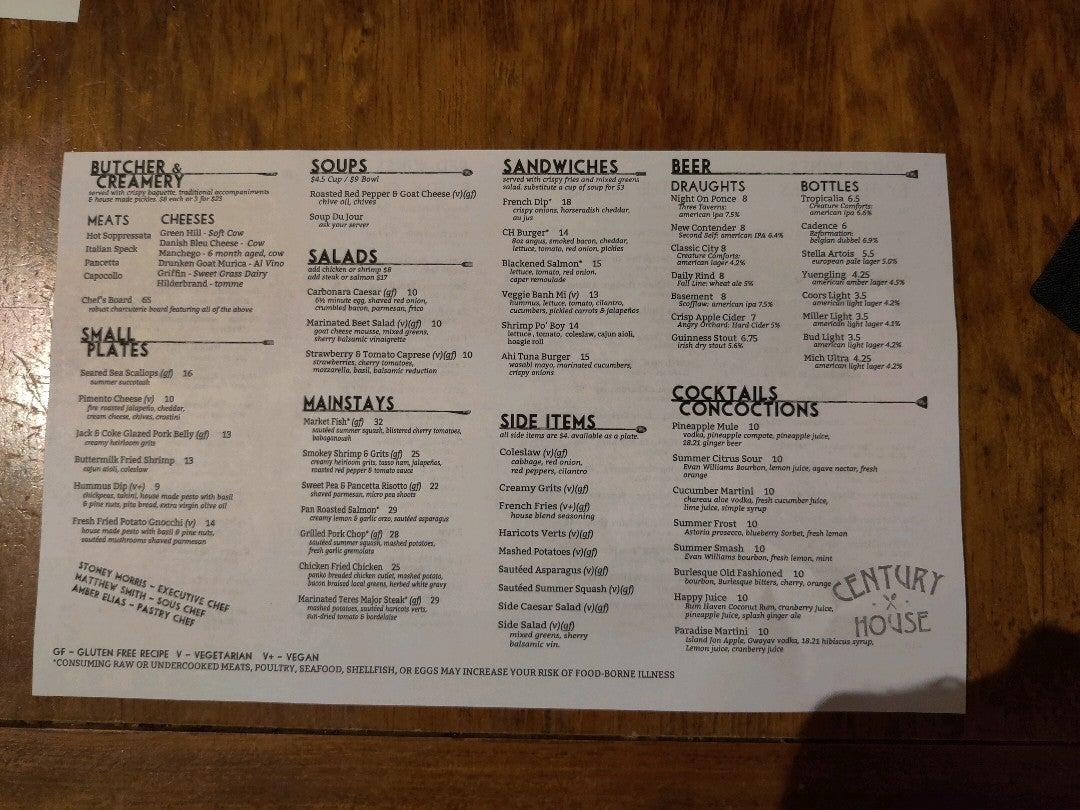 BUTCHER &
CREAMERY
served with crispy baguette, traditional accompaniments
& house made pickles. $8 each or 3 for $23
MEATS
Hot Soppressata
Italian Speck
Pancetta
Capocollo
CHEESES
Green Hill - Soft Cow
Danish Bleu Cheese - Cow
Manchego - 6 month aged, cow
Drunken Goat Murica - Al Vino
Griffin - Sweet Grass Dairy
Hilderbrand - tomme
Chef's Board 65
robust charcuterie board featuring all of the above
SMALL
PLATES
Seared Sea Scallops (gf) 16
summer succotash
Pimento Cheese (v) 10
fire roasted jalapeño, cheddar,
cream cheese, chives, crostini
Jack & Coke Glazed Pork Belly (gf) 13
creamy heirloom grits
Buttermilk Fried Shrimp 13
cajun aioli, coleslaw
Hummus Dip (v+) 9
chickpeas, tahini, house made pesto with basil
& pine nuts, pita bread, extra virgin olive oil
Fresh Fried Potato Gnocchi (v) 14
house made pesto with basil & pine nuts,
sautéed mushrooms shaved parmesan
STONEY MORRIS - EXECUTIVE CHEF
MATTHEW SMITH - SOUS CHEF
AMBER ELIAS - PASTRY CHEF
SOUPS
$4.5 Cup / $9 Bowl
Roasted Red Pepper & Goat Cheese (v)(gf)
chive oil, chives
Soup Du Jour
ask your server
SALADS
add chicken or shrimp $8
add steak or salmon $17
Carbonara Caesar (gf) 10
6½ minute egg, shaved red onion,
crumbled bacon, parmesan, frico
Marinated Beet Salad (v)(gf) 10
goat cheese mousse, mixed greens,
sherry balsamic vinaigrette
Strawberry & Tomato Caprese (v)(gf) 10
strawberries, cherry tomatoes,
mozzarella, basil, balsamic reduction
MAINSTAYS
Market Fish* (gf) 32
sautéed summer squash, blistered cherry tomatoes,
babaganoush
Smokey Shrimp & Grits (gf) 25
creamy heirloom grits, tasso ham, jalapeños,
roasted red pepper & tomato sauce
Sweet Pea & Pancetta Risotto (gf) 22
shaved parmesan, micro pea shoots
Pan Roasted Salmon* 29
creamy lemon & garlic orzo, sautéed asparagus
Grilled Pork Chop* (gf) 28
sautéed summer squash, mashed potatoes,
fresh garlic gremolata
Chicken Fried Chicken 25
panko breaded chicken cutlet, mashed potato,
bacon braised local greens, herbed white gravy
Marinated Teres Major Steak* (gf) 29
mashed potatoes, sautéed haricots verts,
sun-dried tomato & bordelaise
SANDWICHES
served with crispy fries and mixed greens
salad. substitute a cup of soup for $3
French Dip* 18
crispy onions, horseradish cheddar,
au jus
CH Burger* 14
8oz angus, smoked bacon, cheddar,
lettuce, tomato, red onion, pickles
Blackened Salmon* 15
lettuce, tomato, red onion,
caper remoulade
Veggie Banh Mi (v) 13
hummus, lettuce, tomato, cilantro,
cucumbers, pickled carrots & jalapeños
Shrimp Po' Boy 14
lettuce, tomato, coleslaw, cajun aioli,
hoagie roll
Ahi Tuna Burger 15
wasabi mayo, marinated cucumbers,
crispy onions
SIDE ITEMS
all side items are $4. available as a plate.
Coleslaw (v)(gf)
cabbage, red onion,
red peppers, cilantro
Creamy Grits (v)(gf)
French Fries (v+)(gf)
house blend seasoning
Haricots Verts (v)(gf)
Mashed Potatoes (v)(gf)
Sautéed Asparagus (v)(gf)
Sautéed Summer Squash (v)(gf)
Side Caesar Salad (v)(gf)
Side Salad (v)(gf)
mixed greens, sherry
balsamic vin.
BEER
DRAUGHTS
Night On Ponce 8
Three Taverns:
american ipa 7.5%
New Contender 8
Second Self: american IPA 6.4%
Classic City 8
Creature Comforts:
american lager 4.2%
Daily Rind 8
Fall Line: wheat ale 5%
Basement 8
Scofflaw: american ipa 7.5%
Crisp Apple Cider 7
Angry Orchard: Hard Cider 5%
Guinness Stout 6.75
irish dry stout 5.6%
BOTTLES
Tropicalia 6.5
Creature Comforts:
american ipa 6.6%
Cadence 6
Reformation:
belgian dubbel 6.9%
Stella Artois 5.5
european pale lager 5.0%
Yuengling 4.25
american amber lager 4.5%
Coors Light 3.5
american light lager 4.2%
Miller Light 3.5
american light lager 4.1%
Bud Light 3.5
american light lager 4.2%
Mich Ultra 4.25
american light lager 4.2%
COCKTAILS
CONCOCTIONS
Pineapple Mule 10
vodka, pineapple compote, pineapple juice,
18.21 ginger beer
Summer Citrus Sour 10
Evan Williams Bourbon, lemon juice, agave nectar, fresh
orange
Cucumber Martini 10
chareau aloe vodka, fresh cucumber juice,
lime juice, simple syrup
Summer Frost 10
Astoria prosecco, blueberry Sorbet, fresh lemon
Summer Smash 10
Evan Williams bourbon, fresh lemon, mint
Burlesque Old Fashioned 10
bourbon, Burlesque bitters, cherry, orange
Happy Juice 10
Rum Haven Coconut Rum, cranberry juice,
pineapple juice, splash ginger ale
Paradise Martini 10
Island Jon Apple, Gwayav vodka, 18.21 hibiscus syrup,
Lemon juice, cranberry juice
CENTURY
HOUSE
GF - GLUTEN FREE RECIPE V - VEGETARIAN V+ - VEGAN
*CONSUMING RAW OR UNDERCOOKED MEATS, POULTRY, SEAFOOD, SHELLFISH, OR EGGS MAY INCREASE YOUR RISK OF FOOD-BORNE ILLNESS